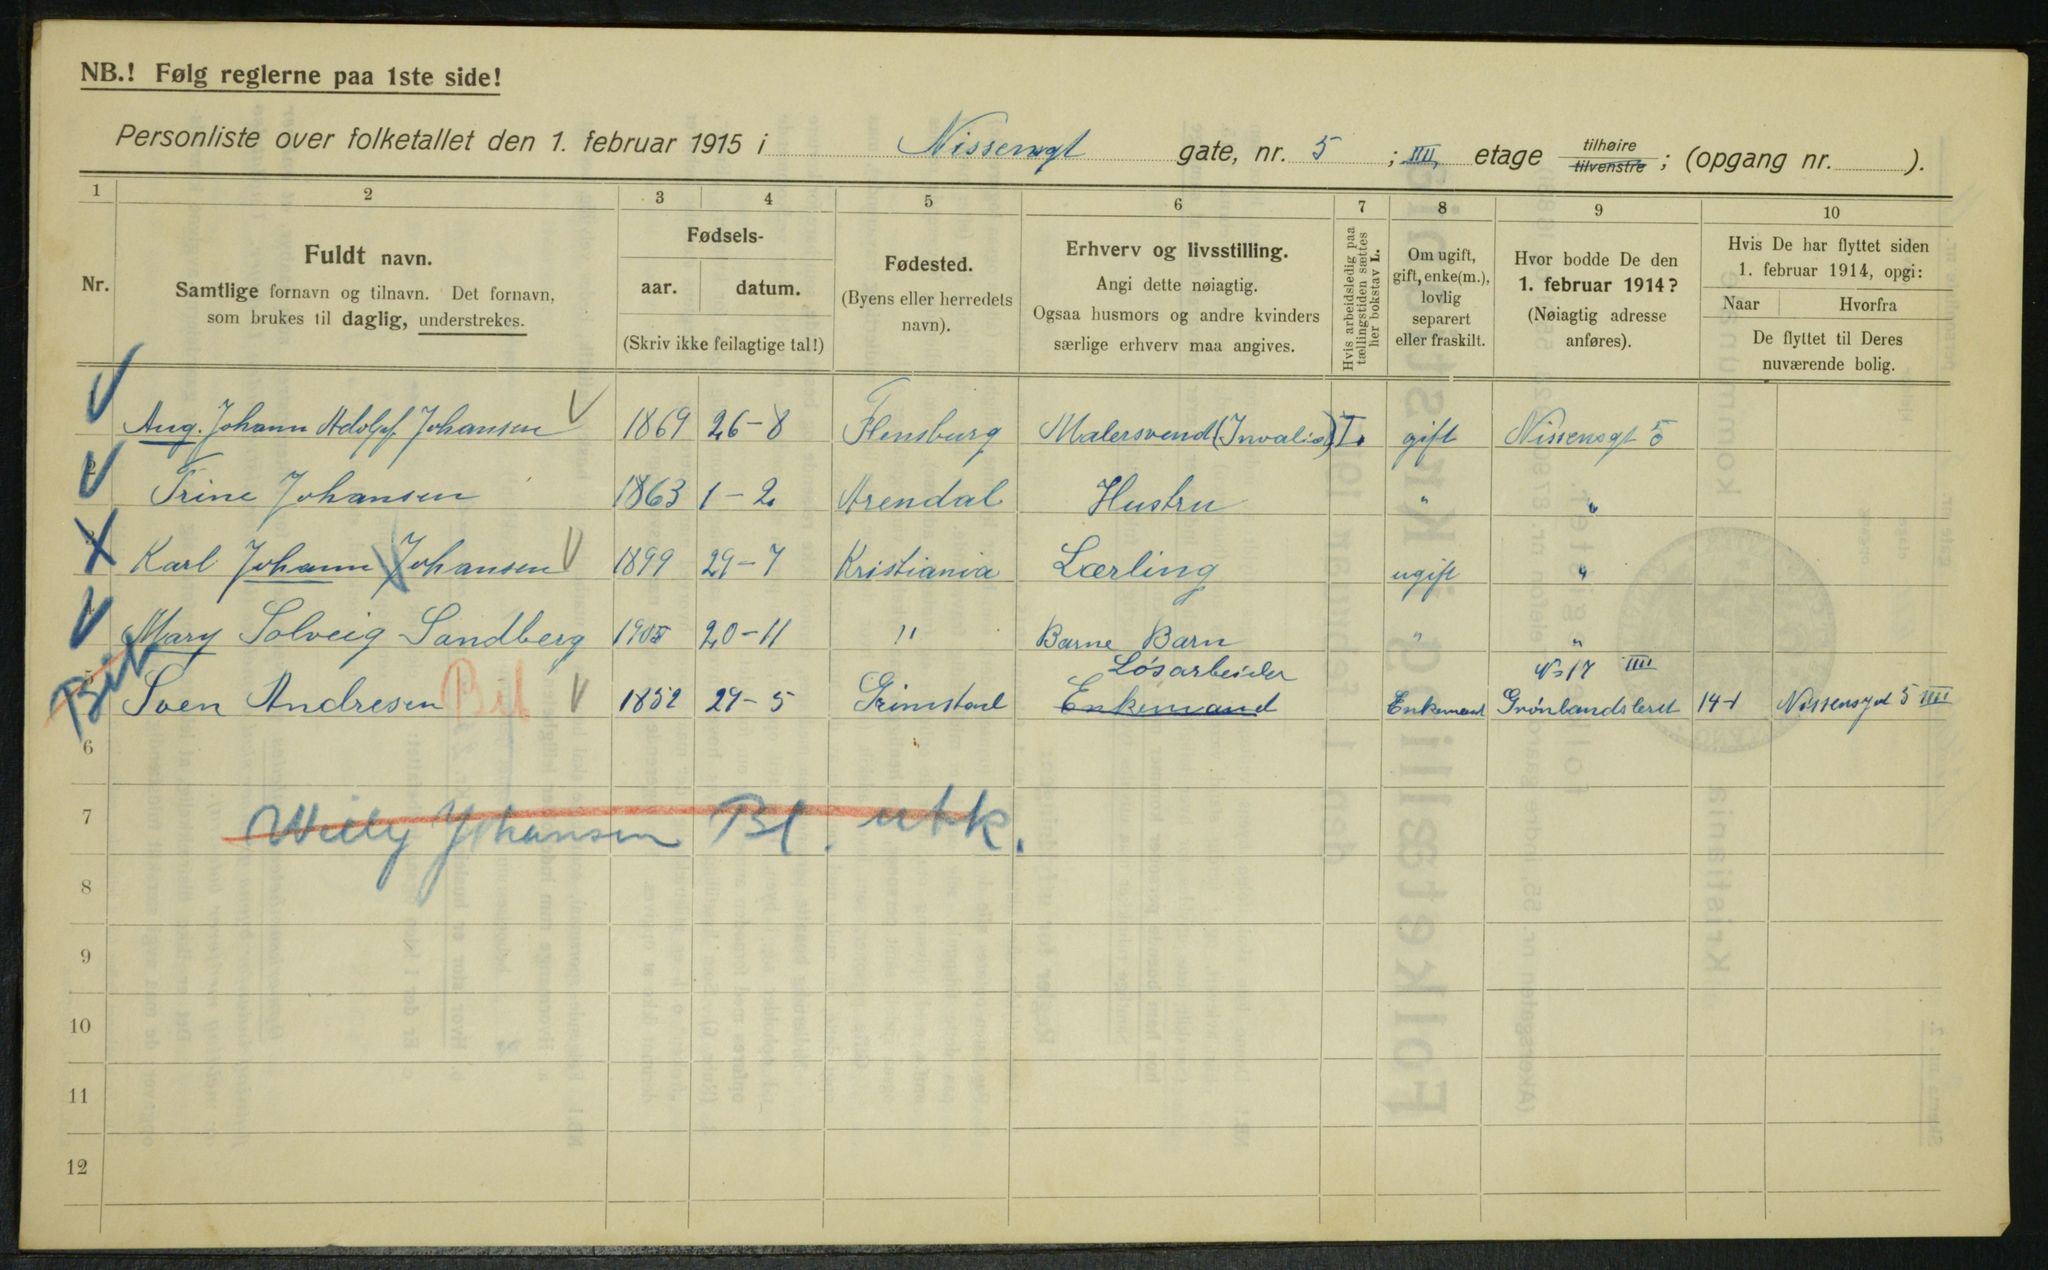 NB.! Følg reglerne paa 1ste side!
Personliste over folketallet den 1. februar 1915 i Nissensgt gate, nr. 5 ; IIII, etage tilhøire tilvenstre ; (opgang nr. ).
1 2 3 4 5 6 7 8 9 10
Nr.
Fuldt navn.
Samtlige fornavn og tilnavn. Det fornavn,
som brukes til daglig, understrekes.
Fødsels-
aar. datum.
(Skriv ikke feilagtige tal!)
Fødested.
(Byens eller herredets
navn).
Erhverv og livsstilling.
Angi dette nøiagtig.
Ogsaa husmors og andre kvinders
særlige erhverv maa angives.
Hvis arbeidsledig paa
tællingstiden sættes
her bokstav L.
Om ugift,
gift, enke(m.),
lovlig
separert
eller fraskilt.
Hvor bodde De den
1. februar 1914?
(Nøiagtig adresse
anføres).
Hvis De har flyttet siden
1. februar 1914, opgi:
Naar Hvorfra
De flyttet til Deres
nuværende bolig.
Aug. Johann Adolf Johansen 1869 26-8 Flensburg Malersvend (Invalid) L. gift Nissensgt 5
Trine Johansen 1863 1-2 Arendal Hustru " "
Karl Johann Johansen 1899 29-7 Kristiania Lærling ugift "
Mary Solveig Sandberg 1905 20-11 " Barne Barn " "
Løsarbeider No 17 IIII
Bil Sven Andresen Bil 1852 29-5 Grimstad Enkemand Enkemand Grønlandsleret 14-1 Nissensgt 5 IIII
6
7 Willy Johansen Bl. utk.
8
9
10
11
12